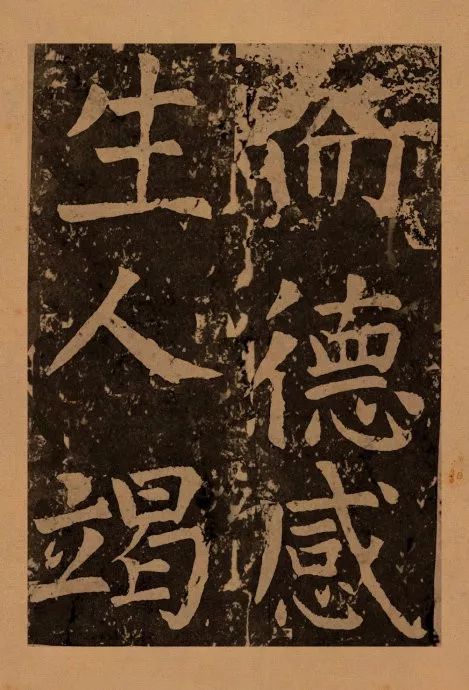 而德感
生人竭